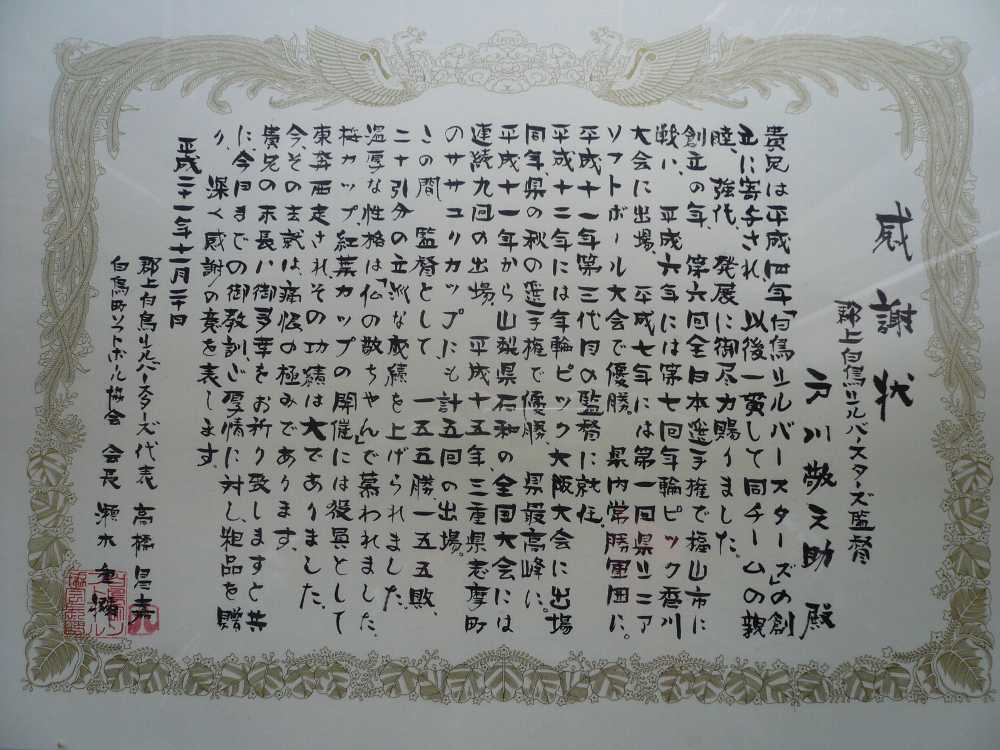 感謝状
郡上白鳥シルバースターズ監督
戸川敬之助 殿
貴兄は平成四年「白鳥シルバースターズ」の創
立に寄与され、以後一貫して同チームの親
睦、強化、発展に御尽力賜りました。
創立の年、第六回全日本選手権で福山市に
戦い、平成六年には第七回年輪ピック香川
大会に出場。平成七年には第一回県シニア
ソフトボール大会で優勝。県内常勝軍団に。
平成十一年第三代目の監督に就任
平成十二年には年輪ピック大阪大会に出場
同年、県の秋の選手権で優勝、県最高峰に。
平成十一年から山梨県石和の全国大会には
連続九回の出場。平成十五年、三重県志摩町
のササユリカップにも計五回の出場。
この間 監督として 一五五勝、一五五敗、
二十引分の立派な成績を上げられました。
温厚な性格は「仏の敬ちゃん」で慕われました。
桜カップ、紅葉カップの開催には役員として
東奔西走されその功績は大でありました。
今、その去就は、痛恨の極みであります。
貴兄の末長い御多幸をお祈り致しますと共
に、今日までの御教訓、ご厚情に対し、粗品を贈
り、深く感謝の意を表します。
平成二十一年十一月二十日
郡上白鳥シルバースターズ代表 高橋昌嘉
白鳥町ソフトボール協会 会長 瀬木